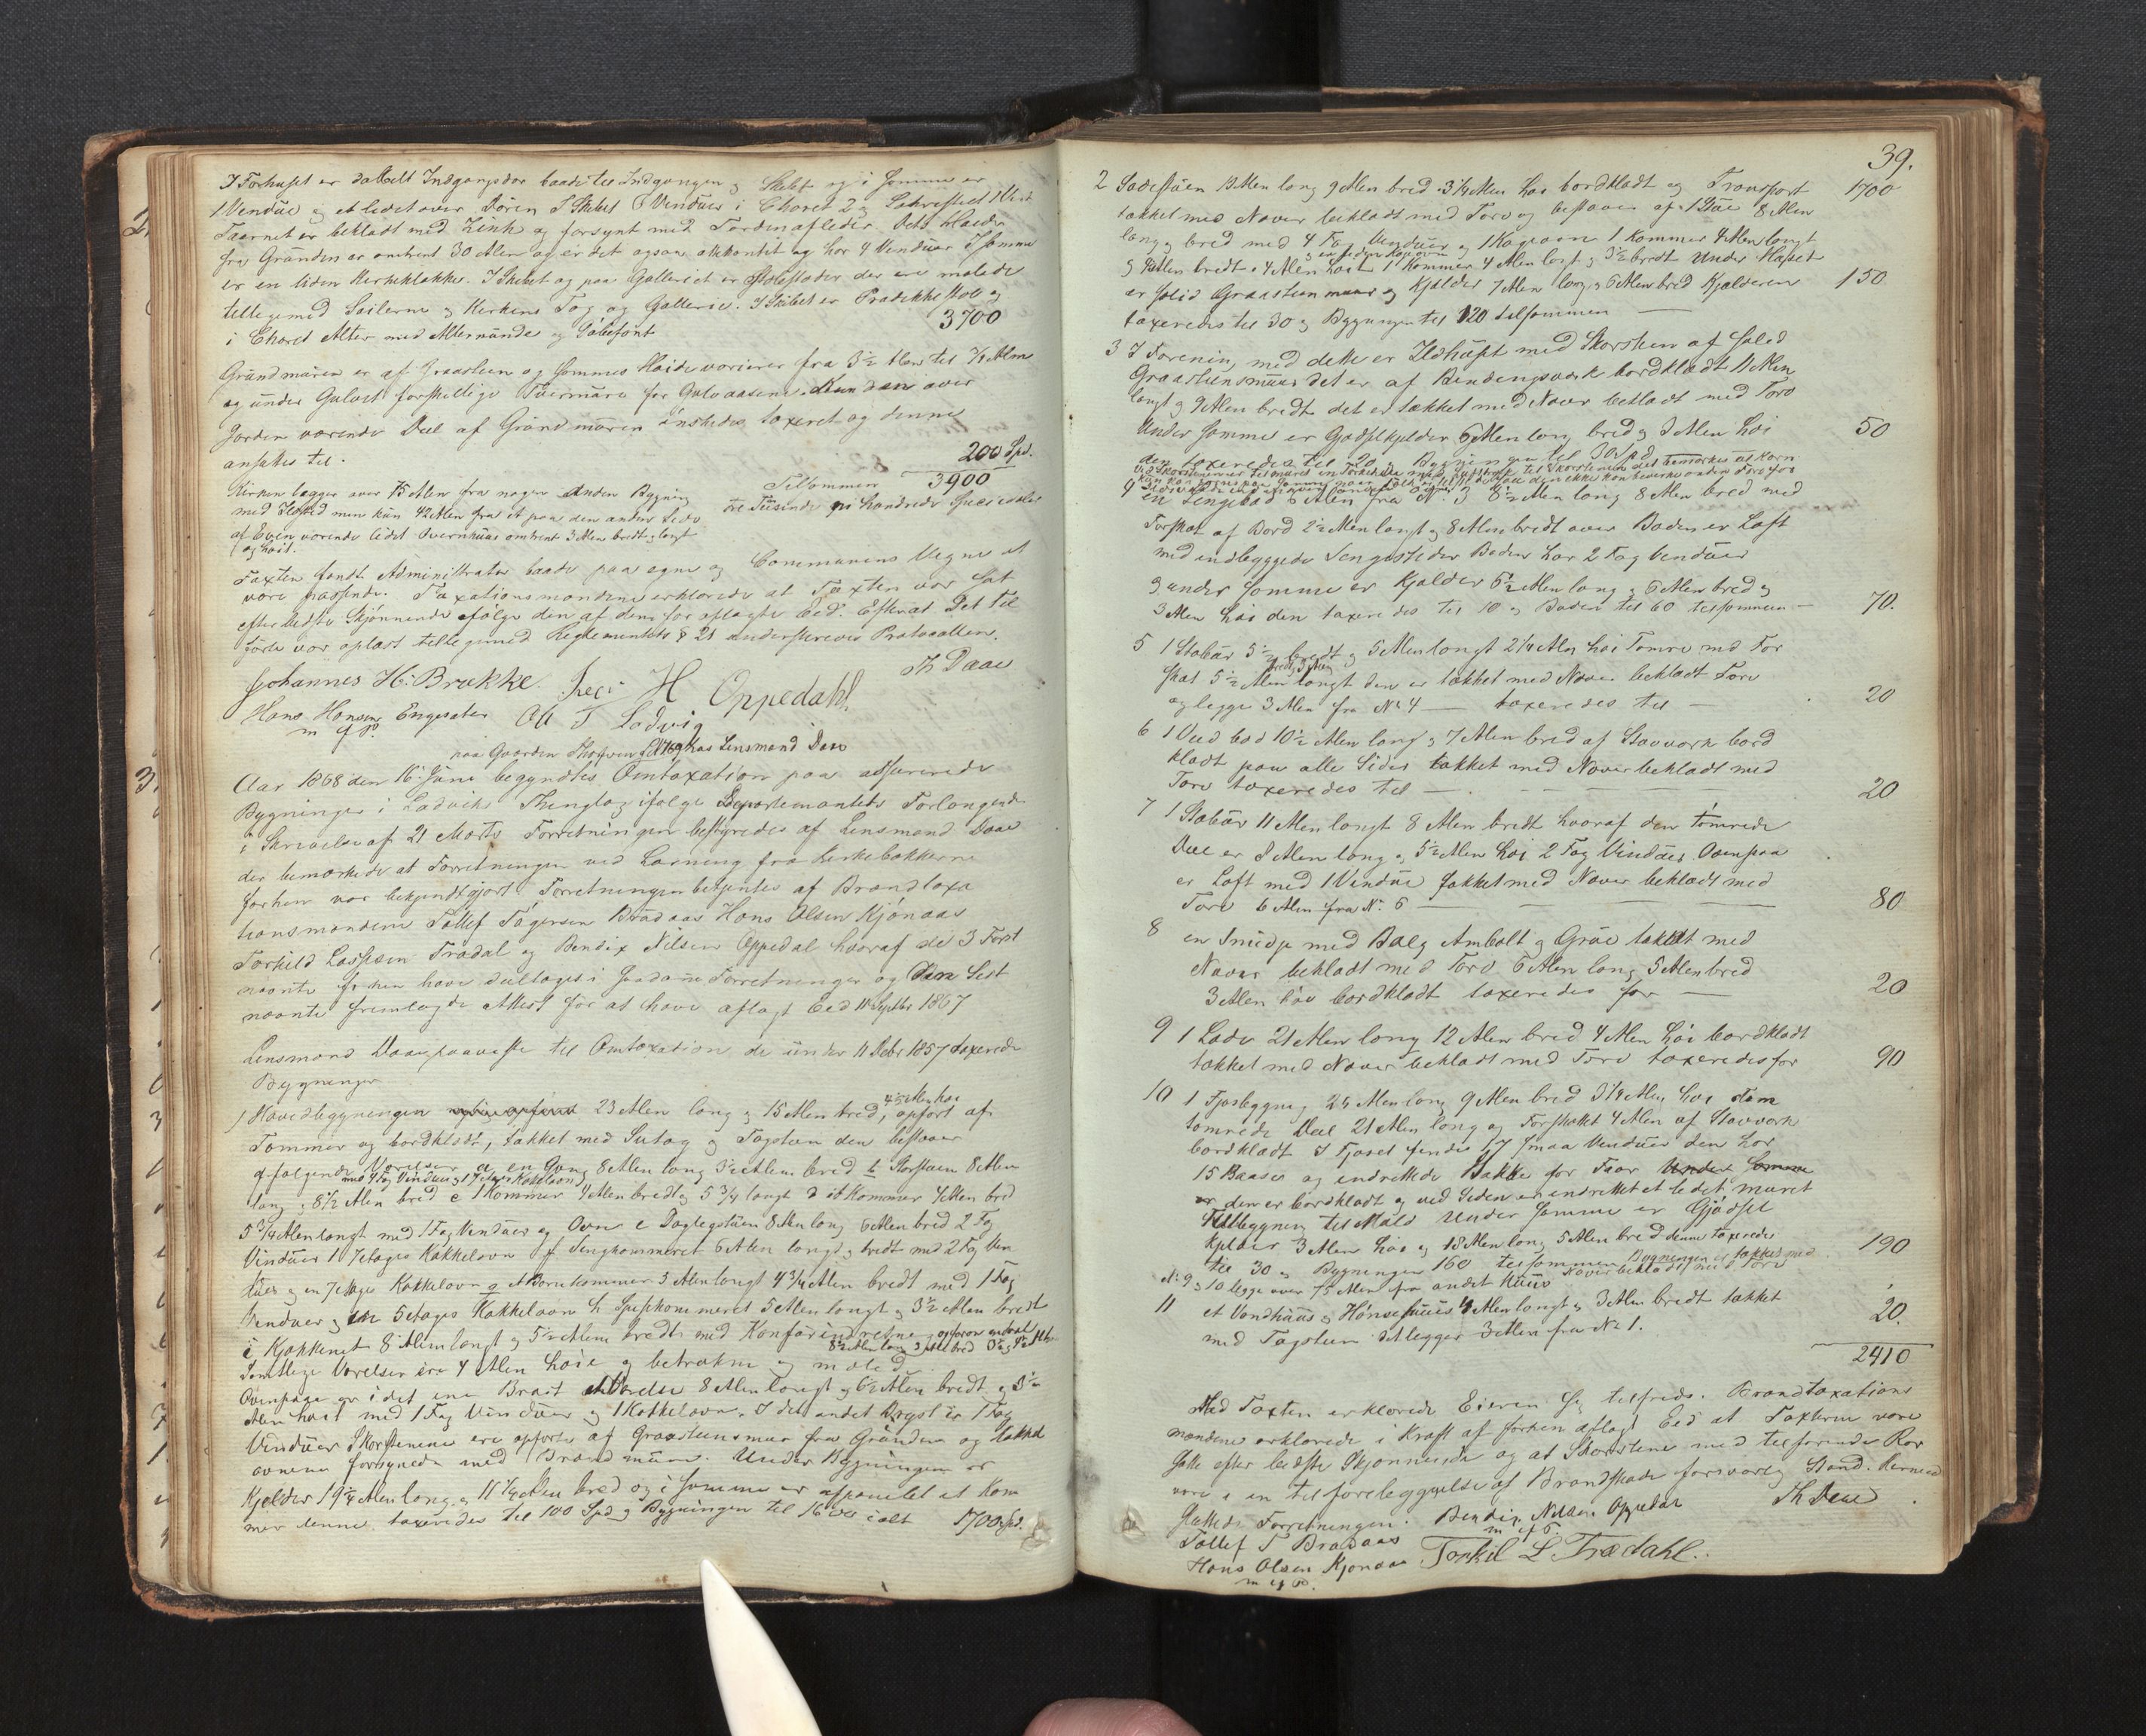 I Forhuset er dobbelt Indgangsdør baade til Indgangen og Skibet og i samme er
1 Vindue og et lidet over Døren I Skibet 6 Vinduer i Choret 2 og Sakrestiet 1 Vindue
Taarnet er beklædt med Zink og forsynt med Tordenafleder. Dets Høide
fra Grunden er omtrent 30 Alen og er det ogsaa ottekantet og har 4 Vinduer I samme
er en liden Kirkeklokke. I Skibet og paa Galleriet er Stolestader der ere malede
tilligemed Søilerne og Kirkens Tag og Gallerie. I Skibet er Prædikestol og
i Choret Alter med Alterrunde og Døbefont 3700
Grundmuren er af Graasteen og sammes Høide varierer fra 3½ Alen til ½ Alen
og under Gulvet forskjellige Tvermure for Gulvaasene. Kun den over
Jorden værende Deel af Grundmuren ønskedes taxeret og denne
ansattes til. 200 Spd.
Tilsammen 3900
Kirken ligger over 75 Alen fra nogen anden Bygning
med Ildsted men kun 42 Alen fra et paa den anden Side
af Elven værende lidet Qvernhuus omtrent 3 Alen bredt og langt
og høit.
tre Tusinde ni Hundrede Speciedaler
Taxten fandt Administrator baade paa egne og Communens Vegne at
være passende. Taxationsmændene erklærede at Taxten var sat
efter bedste Skjønnende ifølge den af dem før aflagte Eed. Efterat Det Til
førte var oplæst tilligemed Reglementets § 21 underskreves Protocollen.
Th Daae
Johannes H: Brække. Jreg: H Oppedahl.
Hans Hansen Engesæter Ole T Ladvig
m f P.
paa Gaarden Lensmand Daae
Aar 1868 den 16 Juni begyndtes Omtaxation paa assurerede
Bygninger i Ladviks Thinglag ifølge Departementets Forlangende
i Skrivelse af 21 Marts Forretningen bestyredes af Lensmand Daae
der bemærkede at Forretningen ved Læsning fra Kirkebakkerne
forhen var bekjendtgjort. Forretningen betjentes af Brandtaxa
tionsmændene Tollef Tøgersen Brådaas Hans Olsen Kjønaas
Torkild Lassesen Trædal og Bendix Nilsen Oppedal hvoraf de 3 Først
nævnte forhen have deeltaget i saadanne Forretninger og Den Sist
nævnte fremlagde Attest for at have aflagt Eed 11 Septbr 1867
Lensmand Daae paaviste til Omtaxation de under 11 Debr 1857 taxerede
Bygninger
1 Hovedbygningen 23 Alen lang og 15 Alen bred, 4½ Alen høi opført af
Tømmer og bordklædt, tækket med Sutag og Tagsteen den bestaaer
af følgende Værelser a, en Gang 8 Alen lang 3½ Alen bred b Storstuen 8 Alen
med 4 Fag Vinduer og 1 Etages Kakkelovn
lang og 8½ Alen bred c 1 Kammer 4 Alen bredt og 5¾ langt d 1 Kammer 4 Alen bred
5¾ Alen langt med 1 Fag Vinduer og Ovn e Daglegstuen 8 Alen lang 6 Alen bred 2 Fag
Vinduer 1 7 etages Kakkelovn f Sengkammeret 6 Alen langt og bredt med 2 Fag Vin
duer og en 7 etages Kakkelovn g et Børnekammer 5 Alen langt 4¾ Alen bredt med 1 Fag
Vinduer og en 5 etages Kakkelovn h Spisekammeret 5 Alen langt og 3½ Alen bredt
i Kjøkkenet 8 Alen langt og 5½ Alen bredt med Komfurindretning
Samtlige Værelser ere 4 Alen høie og betrukne og malede
Ovenpaa er i det ene Bryst et Værelse 8 Alen langt og 6½ Alen bredt og 3½
Alen høit med 1 Fag Vinduer og 1 Kakkelovn. I det andet Bryst er 1 Fag
Vinduer Skorstenene ere opførte af Graasteensmur fra Grunden og Kakkel
ovnene forsynede med Brandmure. Under Bygningen er
Kjelder 19¼ Alen lang og 11¼ Alen bred og i samme er afpanelet et Kam
mer denne taxeredes til 100 Spd og Bygningen til 1600 ialt 1700 Spd.
39.
2 Ladestuen 13 Alen lang 9 Alen bred 3¼ Alen høi bordklædt og Transport 1700
tækket med Næver beklædt med Torv og bestaaer af 1 Stue 8 Alen
lang og bred med 4 Fag Vinduer og 1 Kageovn 1 Kammer 4 Alen langt
og 4 Alen bredt 4 Alen høit 1 Kammer 4 Alen langt og 3½ bredt Under Huset
er solid Graasteen muur og Kjelder 7 Alen lang og 6 Alen bred Kjelderen
taxeredes til 30 og Bygningen til 120 tilsammen 150
3 I Forening med dette er Ildhuset med Skorsten af solid
Graasteensmuur det er af Bindingsværk bordklædt 11 Alen
langt og 9 Alen bredt det er tækket med Næver beklædt med Torv
Under samme er Gjødselkjelder 6 Alen lang bred og 3 Alen høi 50
den taxeredes til 20 Bygningen til 30 Spd
4 en Sengebod 6 Alen fra No. 3 8½ Alen lang 8 Alen bred med
Forskot af Bord 2½ Alen langt og 8 Alen bredt over Boden er Loft
med indbyggede Sengesteder Boden har 2 Fag Vinduer
og under samme er Kjelder 6½ Alen lang og 6 Alen bred og
3 Alen høi den taxeredes til 10 og Boden til 60 tilsammen 70.
5 1 Stabur 5½ bredt og 5 Alen langt 2¼ Alen høi Tømre med For
skot 5½ Alen langt den er tækket med Næver beklædt Torv
og ligger 3 Alen fra No 4 taxeredes til 20
6 1 Ved bod 10½ Alen lang og 7 Alen bred af Stavværk bord
klædt paa alle Sider tækket med Næver beklædt med
Torv taxeredes til 20
7 1 Stabur 11 Alen langt 8 Alen bredt hvoraf den tømrede
Deel er 8 Alen lang og 5½ Alen høi 2 Fag Vinduer Ovenpaa
er Loft med 1 Vindue Tækket med Næver beklædt med
Torv 6 Alen fra No. 6 80
8 en Smidje med Bælg Ambolt og Grue tækket med
Næver beklædt med Torv 6 Alen lang 5 Alen bred
3 Alen høi bordklædt taxeredes for 20
9 1 Lade 21 Alen lang 12 Alen bred 4 Alen høi bordklædt
tækket med Næver beklædt med Torv taxeredes for 90
10 1 Fjøsbygning 25 Alen lang 9 Alen bred 3¼ Alen høi dens
tømrede Deel 21 Alen lang og Forskottet 4 Alen af Stavværk
bordklædt I Fjøset findes 7 smaa Vinduer den har
15 Baase og indrettede Bække for Faar
den er bordklædt og ved Siden er indrettet et lidet muret
Tilbygning til Møld Under samme er Gjødsel
kjelder 3 Alen høi og 18 Alen lang 5 Alen bred denne taxeredes
til 30 og Bygningen 160 tilsammen Bygningen er tækket med 190
No 9 og 10 ligge over 75 Alen fra andet Huus Næver beklædt med Torv
11 et Vandhuus og Hønsehuus 4 Alen langt og 3 Alen bredt tækket
med Tagsteen det ligger 3 Alen fra No 1. 20.
2410
Med Taxten erklærede Eieren sig tilfreds. Brandtaxations
mændene erklærede i Kraft af forhen aflagt Eed at Taxterne vare
satte efter bedste Skjønnende og at Skorstene med tilhørende Rør
vare i en til Forebyggelse af Brandskade forsvarlig Stand. Hermed
sluttedes Forretningen. Bendix Nilsen Oppedal Th Daae
m f P.
Tollef T Brådaas
Hans Olsen Kjønaas Torkil L Trædahl..
m f P.